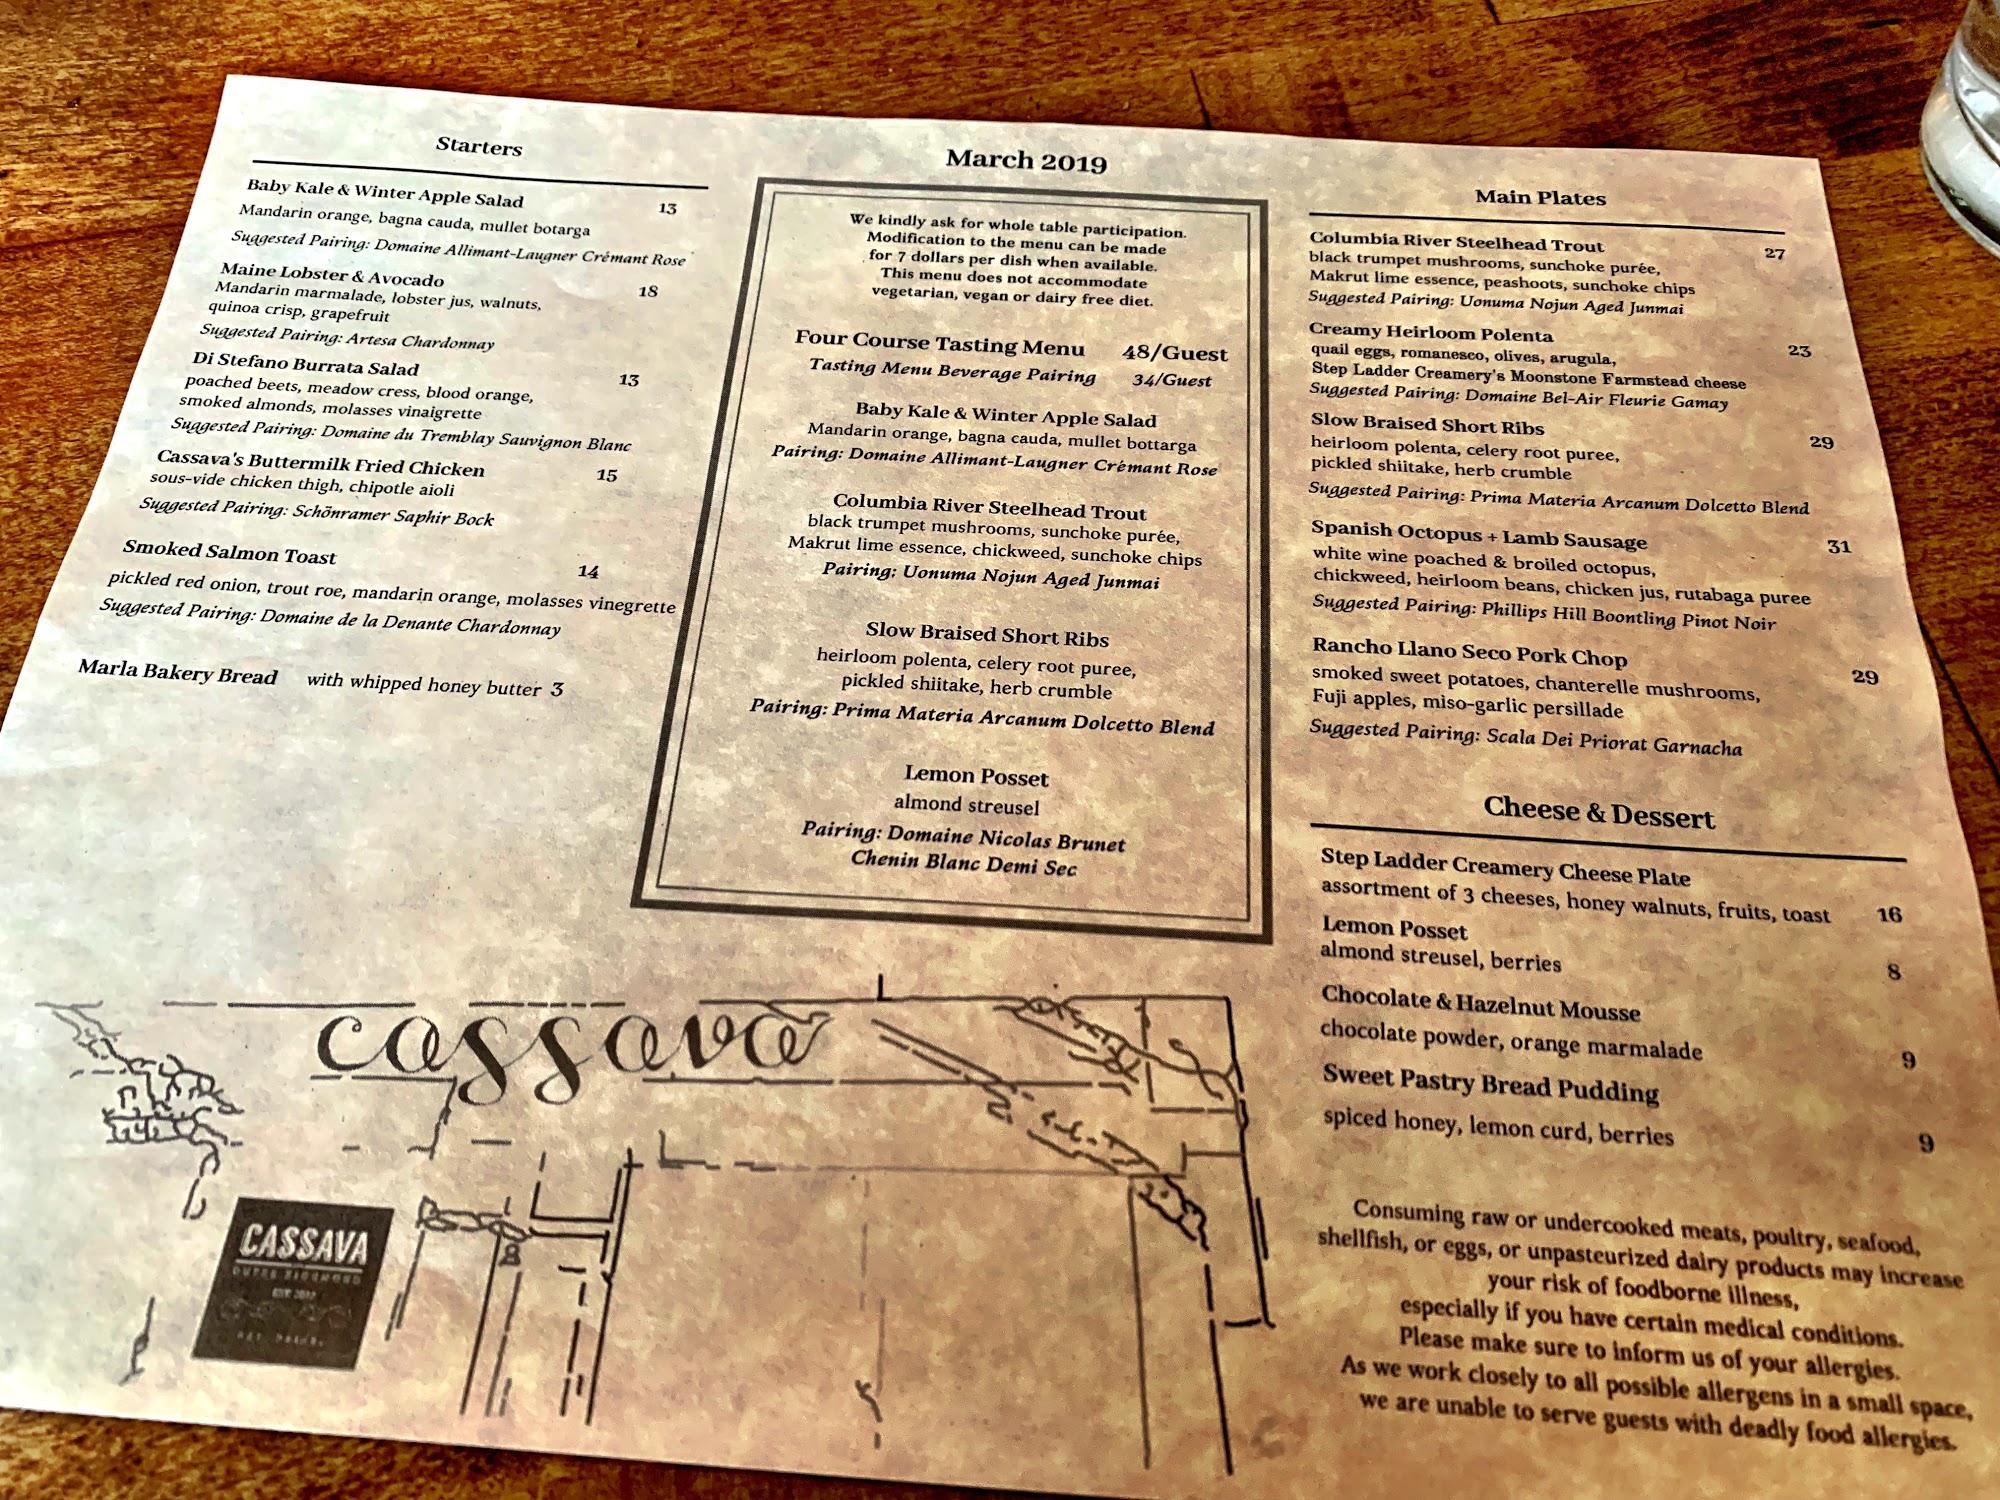 Starters
Baby Kale & Winter Apple Salad 13
Mandarin orange, bagna cauda, mullet botarga
Suggested Pairing: Domaine Allimant-Laugner Crémant Rose
Maine Lobster & Avocado 18
Mandarin marmalade, lobster jus, walnuts,
quinoa crisp, grapefruit
Suggested Pairing: Artesa Chardonnay
Di Stefano Burrata Salad 13
poached beets, meadow cress, blood orange,
smoked almonds, molasses vinaigrette
Suggested Pairing: Domaine du Tremblay Sauvignon Blanc
Cassava's Buttermilk Fried Chicken 15
sous-vide chicken thigh, chipotle aioli
Suggested Pairing: Schönramer Saphir Bock
Smoked Salmon Toast 14
pickled red onion, trout roe, mandarin orange, molasses vinegrette
Suggested Pairing: Domaine de la Denante Chardonnay
Marla Bakery Bread with whipped honey butter 3
March 2019
We kindly ask for whole table participation.
Modification to the menu can be made
for 7 dollars per dish when available.
This menu does not accommodate
vegetarian, vegan or dairy free diet.
Four Course Tasting Menu 48/Guest
Tasting Menu Beverage Pairing 34/Guest
Baby Kale & Winter Apple Salad
Mandarin orange, bagna cauda, mullet bottarga
Pairing: Domaine Allimant-Laugner Crémant Rose
Columbia River Steelhead Trout
black trumpet mushrooms, sunchoke purée,
Makrut lime essence, chickweed, sunchoke chips
Pairing: Uonuma Nojun Aged Junmai
Slow Braised Short Ribs
heirloom polenta, celery root puree,
pickled shiitake, herb crumble
Pairing: Prima Materia Arcanum Dolcetto Blend
Lemon Posset
almond streusel
Pairing: Domaine Nicolas Brunet
Chenin Blanc Demi Sec
Main Plates
Columbia River Steelhead Trout 27
black trumpet mushrooms, sunchoke purée,
Makrut lime essence, peashoots, sunchoke chips
Suggested Pairing: Uonuma Nojun Aged Junmai
Creamy Heirloom Polenta 23
quail eggs, romanesco, olives, arugula,
Step Ladder Creamery's Moonstone Farmstead cheese
Suggested Pairing: Domaine Bel-Air Fleurie Gamay
Slow Braised Short Ribs 29
heirloom polenta, celery root puree,
pickled shiitake, herb crumble
Suggested Pairing: Prima Materia Arcanum Dolcetto Blend
Spanish Octopus + Lamb Sausage 31
white wine poached & broiled octopus,
chickweed, heirloom beans, chicken jus, rutabaga puree
Suggested Pairing: Phillips Hill Boontling Pinot Noir
Rancho Llano Seco Pork Chop 29
smoked sweet potatoes, chanterelle mushrooms,
Fuji apples, miso-garlic persillade
Suggested Pairing: Scala Dei Priorat Garnacha
Cheese & Dessert
Step Ladder Creamery Cheese Plate
assortment of 3 cheeses, honey walnuts, fruits, toast 16
Lemon Posset
almond streusel, berries 8
Chocolate & Hazelnut Mousse
chocolate powder, orange marmalade 9
Sweet Pastry Bread Pudding
spiced honey, lemon curd, berries 9
Consuming raw or undercooked meats, poultry, seafood,
shellfish, or eggs, or unpasteurized dairy products may increase
your risk of foodborne illness,
especially if you have certain medical conditions.
Please make sure to inform us of your allergies.
As we work closely to all possible allergens in a small space,
we are unable to serve guests with deadly food allergies.
cassava
CASSAVA